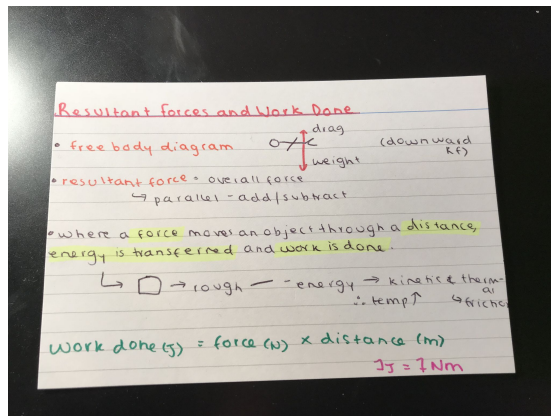 Resultant Forces and Work Done
drag
• free body diagram
(downward
Rf)
weight
• resultant force • overall force
↳ parallel - add/subtract
• where a force moves an object through a distance,
energy is transferred and work is done.
↳ → rough — - energy → kinetic & therm-
al
∴ temp ↑ ↳ friction
Work done (J) = force (N) × distance (m)
1J = 1Nm